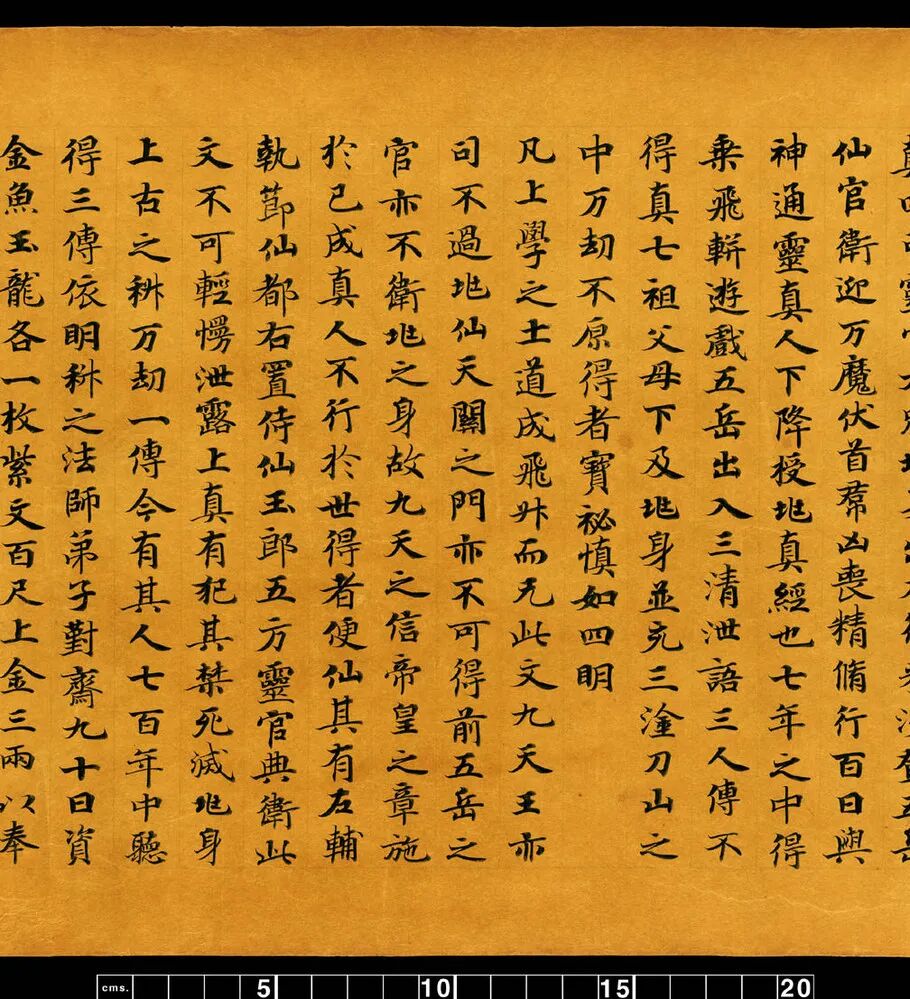 仙官衛迎万魔伏首羣凶喪精脩行百日與
神通靈真人下降授兆真經也七年之中得
乗飛軿遊戲五岳出入三清泄語三人傳不
得真七祖父母下及兆身並充三塗刀山之
中万劫不原得者寶祕慎如四明
凡上學之士道成飛升而无此文九天王亦
司不過兆仙天關之門亦不可得前五岳之
官亦不衛兆之身故九天之信帝皇之章施
於已成真人不行於世得者便仙其有左輔
執莭仙都右置侍仙玉郎五方靈官典衛此
文不可輕慢泄露上真有犯其禁死滅兆身
上古之科万劫一傳今有其人七百年中聽
得三傳依明科之法師弟子對齋九十日資
金魚玉龍各一枚紫文百尺上金三兩以奉
cms. 5 10 15 20